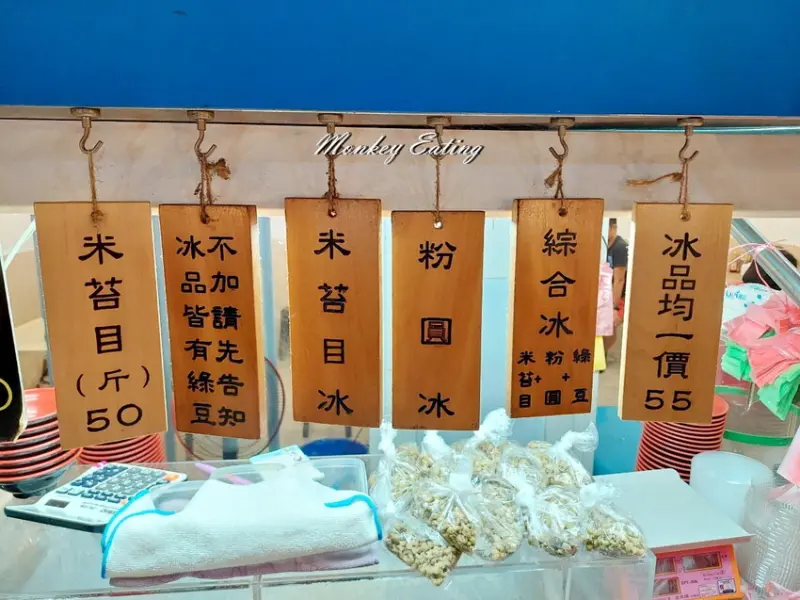 Monkey Eating
米苔目
(斤)
50
不加請先告知
冰品皆有綠豆
米苔目冰
粉圓冰
綜合冰
綠豆
+
粉圓
+
米苔目
冰品均一價
55